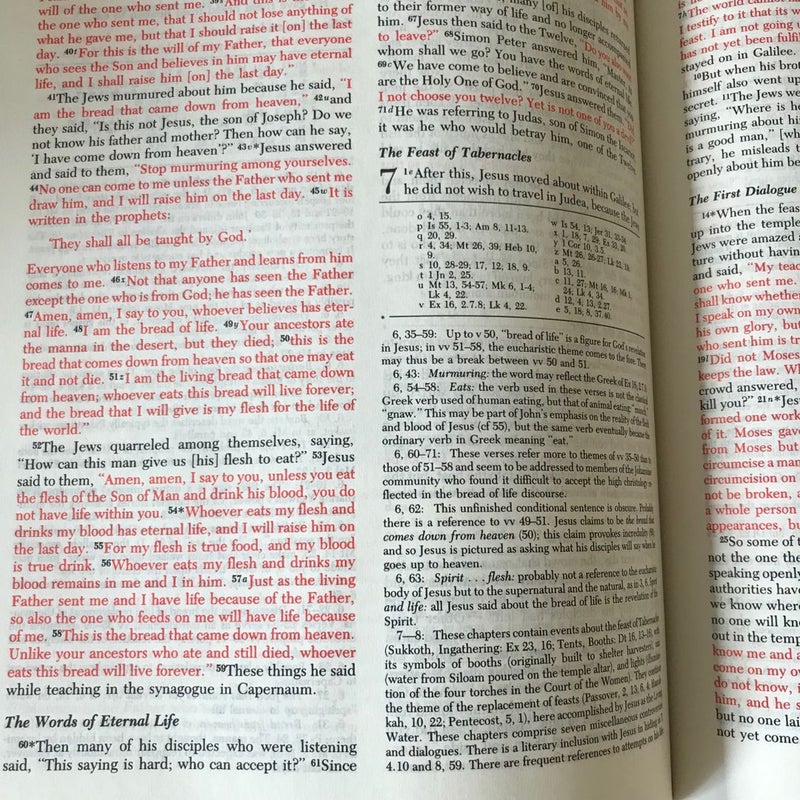 will of the one who sent me. 39 And this is the
the one who sent me, that I should not lose anything of
what he gave me, but that I should raise it [on] the last
day. 40t For this is the will of my Father, that everyone
who sees the Son and believes in him may have eternal
life, and I shall raise him [on] the last day."
41The Jews murmured about him because he said, "I
am the bread that came down from heaven," 42u and
they said, "Is this not Jesus, the son of Joseph? Do we
not know his father and mother? Then how can he say,
'I have come down from heaven'?" 43v*Jesus answered
and said to them, "Stop murmuring among yourselves.
44No one can come to me unless the Father who sent me
draw him, and I will raise him on the last day. 45w It is
written in the prophets:
'They shall all be taught by God.'
Everyone who listens to my Father and learns from him
comes to me. 46x Not that anyone has seen the Father
except the one who is from God; he has seen the Father.
47Amen, amen, I say to you, whoever believes has eter-
nal life. 48I am the bread of life. 49y Your ancestors ate
the manna in the desert, but they died; 50this is the
bread that comes down from heaven so that one may eat
it and not die. 51z I am the living bread that came down
from heaven; whoever eats this bread will live forever;
and the bread that I will give is my flesh for the life of
the world."
52The Jews quarreled among themselves, saying,
"How can this man give us [his] flesh to eat?" 53Jesus
said to them, "Amen, amen, I say to you, unless you eat
the flesh of the Son of Man and drink his blood, you do
not have life within you. 54*Whoever eats my flesh and
drinks my blood has eternal life, and I will raise him on
the last day. 55For my flesh is true food, and my blood
is true drink. 56Whoever eats my flesh and drinks my
blood remains in me and I in him. 57a Just as the living
Father sent me and I have life because of the Father,
so also the one who feeds on me will have life because
of me. 58This is the bread that came down from heaven.
Unlike your ancestors who ate and still died, whoever
eats this bread will live forever." 59These things he said
while teaching in the synagogue in Capernaum.
The Words of Eternal Life
60*Then many of his disciples who were listening
said, "This saying is hard; who can accept it?" 61Since
many [of] his disciples returned
to their former way of life and no longer accompanied
him. 67Jesus then said to the Twelve, "Do you also want
to leave?" 68Simon Peter answered him, "Master, to
whom shall we go? You have the words of eternal life.
69c We have come to believe and are convinced that you
are the Holy One of God." 70Jesus answered them, "Did
I not choose you twelve? Yet is not one of you a devil?"
71d He was referring to Judas, son of Simon the Iscariot;
it was he who would betray him, one of the Twelve.
The Feast of Tabernacles
7 1e After this, Jesus moved about within Galilee; but
he did not wish to travel in Judea, because the Jews
o 4, 15.
p Is 55, 1-3; Am 8, 11-13.
q 20, 29.
r 4, 34; Mt 26, 39; Heb 10,
9.
s 10, 28-29; 17, 12; 18, 9.
t 1 Jn 2, 25.
u Mt 13, 54-57; Mk 6, 1-4;
Lk 4, 22.
v Ex 16, 2.7.8; Lk 4, 22.
w Is 54, 13; Jer 31, 33-34.
x 1, 18; 7, 29; Ex 33, 20.
y 1 Cor 10, 3.5.
z Mt 26, 26-27; Lk 22, 19.
a 5, 26.
b 13, 11.
c 11, 27; Mt 16, 16; Mk 1,
24; Lk 4, 34.
d 12, 4; 13, 2.27.
e 5, 18; 8, 37.40.
6, 35–59: Up to v 50, "bread of life" is a figure for God's revelation
in Jesus; in vv 51–58, the eucharistic theme comes to the fore. There
may thus be a break between vv 50 and 51.
6, 43: Murmuring: the word may reflect the Greek of Ex 16, 2.7.8.
6, 54–58: Eats: the verb used in these verses is not the classical
Greek verb used of human eating, but that of animal eating: "munch,"
"gnaw." This may be part of John's emphasis on the reality of the flesh
and blood of Jesus (cf 55), but the same verb eventually became the
ordinary verb in Greek meaning "eat."
6, 60–71: These verses refer more to themes of vv 35-50 than to
those of 51–58 and seem to be addressed to members of the Johannine
community who found it difficult to accept the high christology re-
flected in the bread of life discourse.
6, 62: This unfinished conditional sentence is obscure. Probably
there is a reference to vv 49–51. Jesus claims to be the bread that
comes down from heaven (50); this claim provokes incredulity (60);
and so Jesus is pictured as asking what his disciples will say when he
goes up to heaven.
6, 63: Spirit . . . flesh: probably not a reference to the eucharistic
body of Jesus but to the supernatural and the natural, as in 3, 6. Spirit
and life: all Jesus said about the bread of life is the revelation of the
Spirit.
7—8: These chapters contain events about the feast of Tabernacles
(Sukkoth, Ingathering: Ex 23, 16; Tents, Booths: Dt 16, 13-16), with
its symbols of booths (originally built to shelter harvesters), rain
(water from Siloam poured on the temple altar), and lights (illumina-
tion of the four torches in the Court of the Women). They continue
the theme of the replacement of feasts (Passover, 2, 13; 6, 4; Hanuk-
kah, 10, 22; Pentecost, 5, 1), here accomplished by Jesus as the Living
Water. These chapters comprise seven miscellaneous controversies
and dialogues. There is a literary inclusion with Jesus in hiding in 7,
4.10 and 8, 59. There are frequent references to attempts on his life
7a The world cannot
I testify to it that its w
feast. I am not going
has not yet been fulfil
stayed on in Galilee.
10But when his brot
himself also went up
secret. 11The Jews we
saying, "Where is h
murmuring about hi
is a good man," [wh
trary, he misleads t
openly about him be
The First Dialogue
14*When the feas
up into the temple
Jews were amazed
ture without having
and said, "My teac
one who sent me.
shall know whether
I speak on my own
his own glory, but
who sent him is tr
19l Did not Moses
keeps the law. Wh
crowd answered,
kill you?" 21n*Jesu
formed one work
of it. Moses gave
from Moses but
circumcise a man
circumcision on
not be broken, a
a whole person
appearances, bu
25So some of t
not the one the
speaking openly
authorities have
we know where
no one will kno
out in the temp
know me and a
come on my ow
do not know,
him, and he s
but no one lai
not yet come.